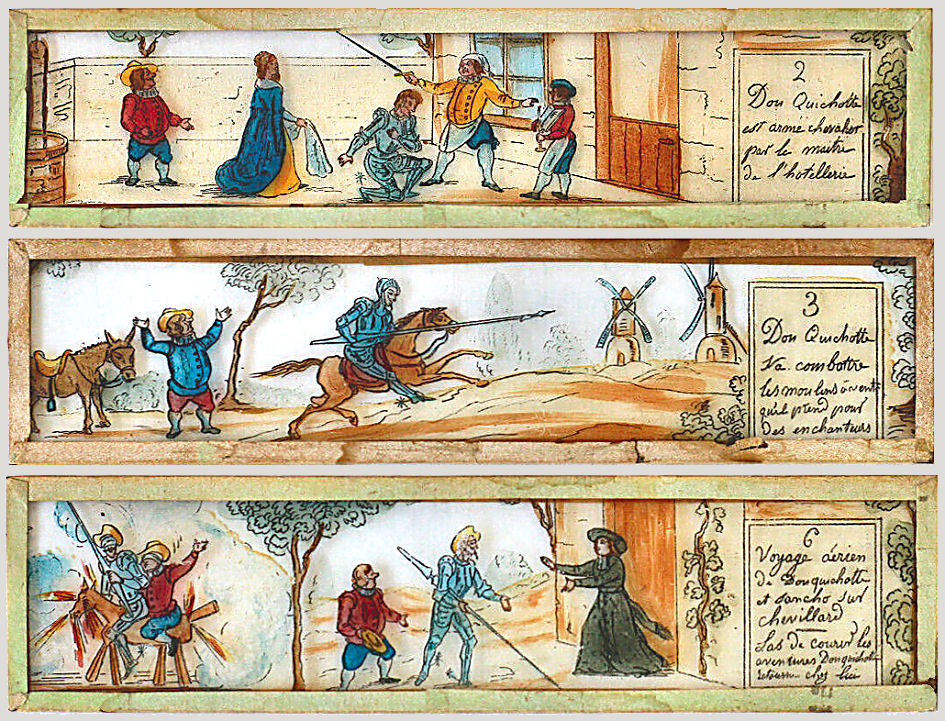 2
Don Quichotte
est armé chevalier
par le maitre
de l'hotellerie
3
Don Quichotte
Va combattre
les moulins à vent
qu'il prend pour
des enchanteurs
6
Voyage aérien
de Donquichotte
et Sancho sur
chevillard
Las de courir les
aventures Donquichotte
retourne chez lui